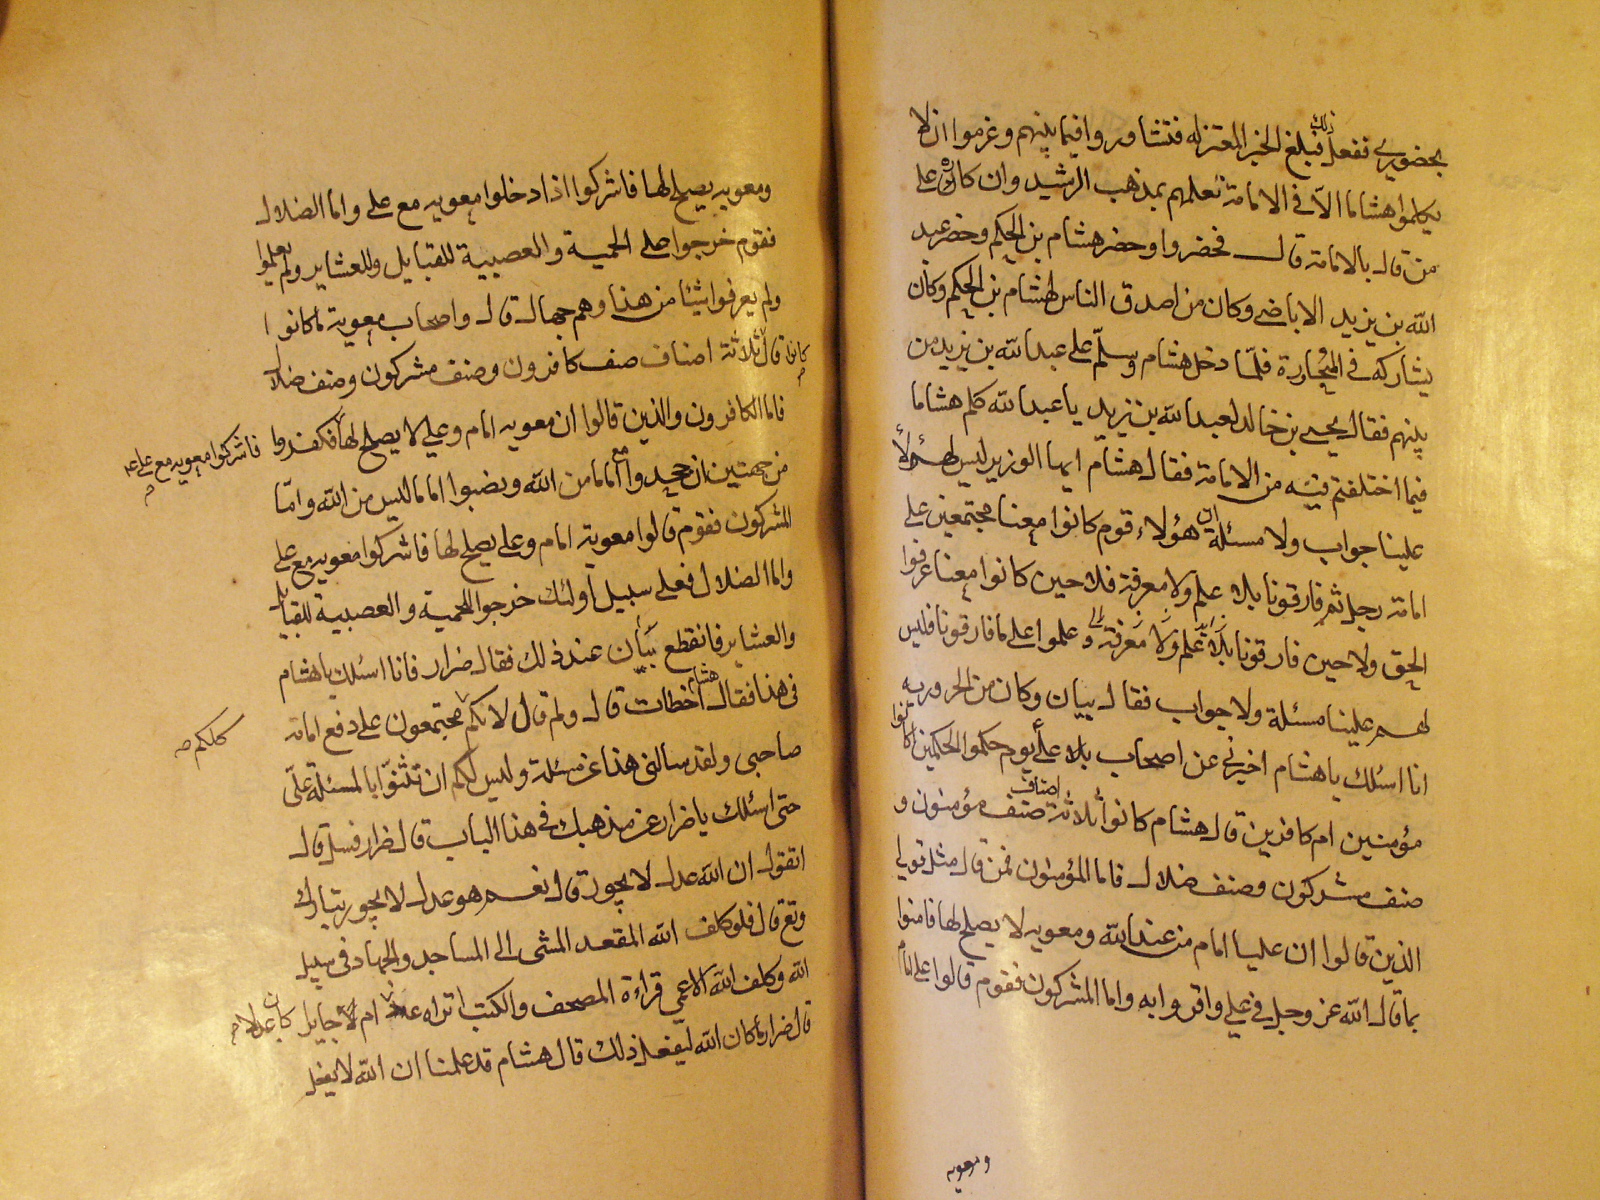 بحضوري ففعل ذلك فبلغ الخبر المعتزله فتشاوروا فيما بينهم وعزموا ان لا
يكلموا هشاما الاّ في الامامة لعلمهم بمذهب الرشيد وانكاره على
من قال بالامامة قال فحضروا وحضر هشام بن الحكم وحضر عبد
الله بن يزيد الاباضي وكان من اصدق الناس لهشام بن الحكم وكان
يشاركه في التجارة فلمّا دخل هشام وسلّم على عبد الله بن يزيد من
بينهم فقال يحيى بن خالد لعبد الله بن يزيد يا عبد الله كلم هشاما
فيما اختلفتم فيه من الامامة فقال هشام ايها الوزير ليس لهؤلاء
علينا جواب ولا مسئلة ان هؤلاء قوم كانوا معنا مجتمعين على
امامة رجل ثم فارقونا بلا علم ولا معرفة فلا حين كانوا معنا عرفوا
الحق ولا حين فارقونا بلا علم ولا معرفة وعلموا على ما فارقونا فليس
لهم علينا مسئلة ولا جواب فقال بيان وكان من الحروريه
انا اسئلك يا هشام اخبرني عن اصحاب علي يوم حكموا الحكمين اكانوا
مؤمنين ام كافرين قال هشام كانوا ثلاثة اصناف صنف مؤمنون و
صنف مشركون وصنف ضلال فاما المؤمنون فمن قال مثل قولي
الذين قالوا ان عليا امام من عند الله ومعويه لا يصلح لها فامنوا
بما قال الله عز وجل في علي واقروا به واما المشركون فقوم قالوا علي امام
ومعويه
ومعويه يصلح لها فاشركوا اذا دخلوا معويه مع علي واما الضلال
فقوم خرجوا على الحمية والعصبية للقبايل وللعشاير ولم يعلموا
ولم يعرفوا شيئا من هذا وهم جهال قال واصحاب معوية ما كانوا
قال كانوا ثلاثة اصناف صنف كافرون وصنف مشركون وصنف ضلال
فاما الكافرون والذين قالوا ان معويه امام وعلي لا يصلح لها فكفروا
فاشركوا معويه مع علي
من جهتين ان جحدوا اماما من الله ونصبوا اماما ليس من الله وامّا
المشركون فقوم قالوا معوية امام وعلي يصلح لها فاشركوا معويه مع علي
واما الضلال فعلى سبيل اولئك خرجوا للحمية والعصبية للقبايل
والعشاير فانقطع بيان عند ذلك فقال ضرار فانا اسئلك يا هشام
في هذا فقال هشام اخطات قال ولم قال لانكم مجتمعون على دفع امامة
كلكم
صاحبي ولقد سالني هذا عن مسئلة وليس لكم ان تثنّوا بالمسئلة عليّ
حتى اسئلك يا ضرار عن مذهبك في هذا الباب قال ضرار فسل قال
اتقول ان الله عدل لا يجور قال نعم هو عدل لا يجور تبارك
وتع قال فلو كلف الله المقعد المشي الى المساجد والجهاد في سبيل
الله وكلف الله الاعمى قراءة المصحف والكتب اتراه عدلا ام لا
كان عدلا
قال ضرار ما كان الله ليفعل ذلك قال هشام قد علمنا ان الله لا يفعل